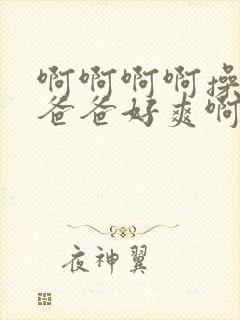 啊啊啊啊操
爸爸好爽啊
夜神翼